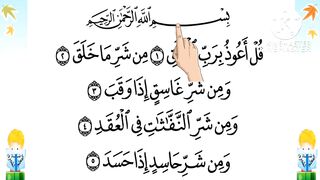 بِسْمِ اللَّهِ الرَّحْمَٰنِ الرَّحِيمِ
قُلْ أَعُوذُ بِرَبِّ ١ مِن شَرِّ مَا خَلَقَ ٢
وَمِن شَرِّ غَاسِقٍ إِذَا وَقَبَ ٣
وَمِن شَرِّ النَّفَّاثَاتِ فِي الْعُقَدِ ٤
وَمِن شَرِّ حَاسِدٍ إِذَا حَسَدَ ٥